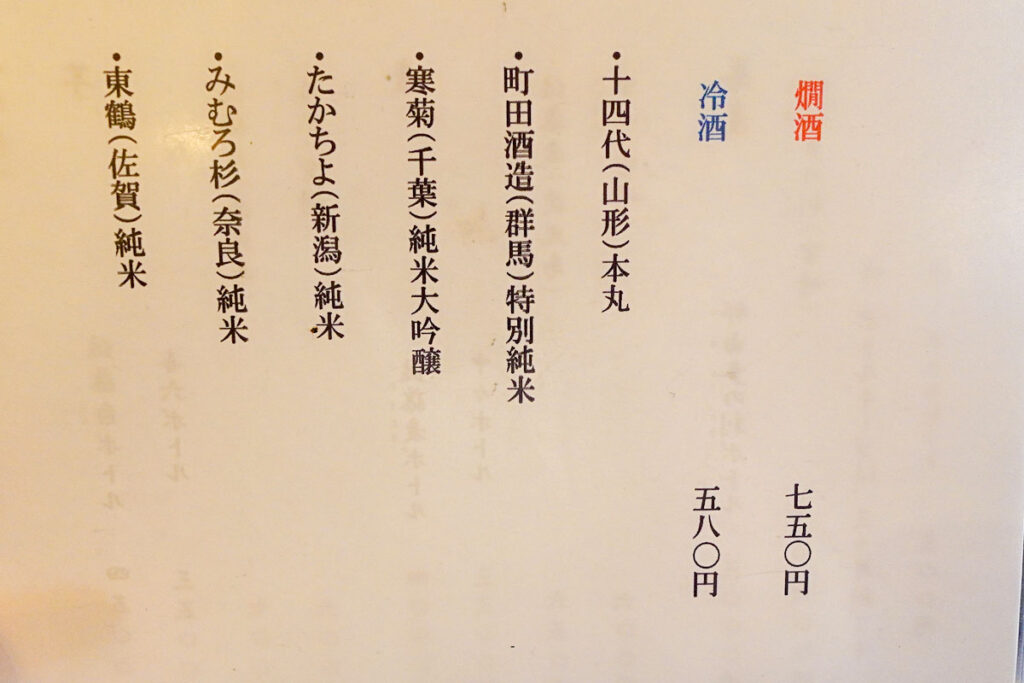 燗酒 七五〇円
冷酒 五八〇円
・十四代（山形）本丸
・町田酒造（群馬）特別純米
・寒菊（千葉）純米大吟醸
・たかちよ（新潟）純米
・みむろ杉（奈良）純米
・東鶴（佐賀）純米